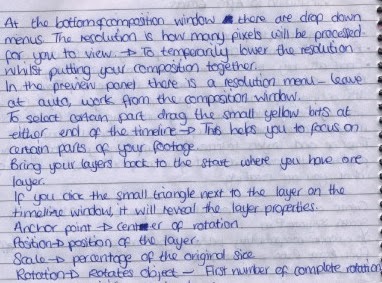 At the bottom of composition window there are drop down
menus. The resolution is how many pixels will be processed
for you to view → To temporarily lower the resolution
whilst putting your composition together.
In the preview panel there is a resolution menu - leave
at auto, work from the composition window.
To select certain part drag the small yellow bits at
either end of the timeline → This helps you to focus on
certain parts of your footage.
Bring your layers back to the start where you have one
layer.
If you click the small triangle next to the layer on the
timeline window, it will reveal the layer properties.
Anchor point → center of rotation
Position → position of the layer.
Scale → percentage of the original size
Rotation → Rotates object - First number of complete rotation